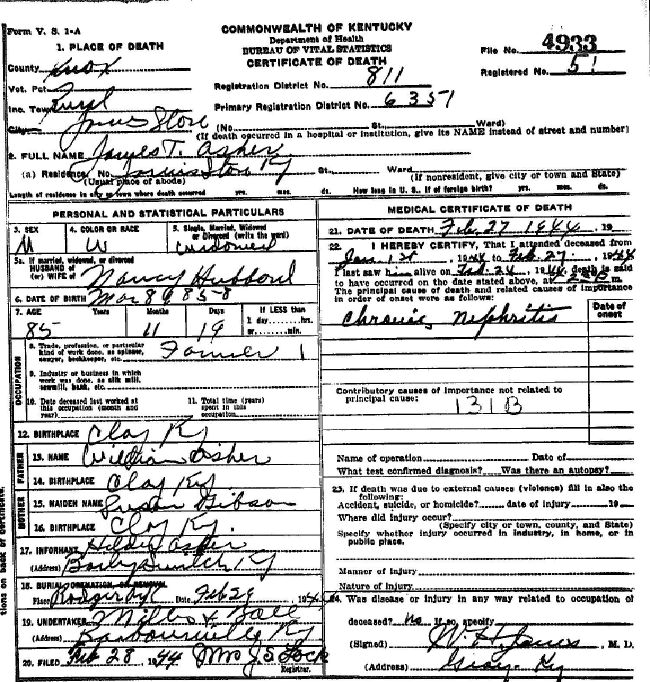 Form V. S. 1-A
COMMONWEALTH OF KENTUCKY
Department of Health
BUREAU OF VITAL STATISTICS
CERTIFICATE OF DEATH
File No. 4933
Registered No. 51
1. PLACE OF DEATH
County Knox
Registration District No. 811
Vot. Pct.
Inc. Town Rural
Primary Registration District No. 6351
City Jarvis Store (No. St. Ward)
(If death occurred in a hospital or institution, give its NAME instead of street and number)
2. FULL NAME James T. Asher
(a) Residence, No. Jarvis Store Ky St. Ward
(Usual place of abode) (If nonresident, give city or town and State)
Length of residence in city or town where death occurred yrs. mos. ds. How long in U. S., if of foreign birth? yrs. mos. ds.
PERSONAL AND STATISTICAL PARTICULARS
3. SEX M
4. COLOR OR RACE W
5. Single, Married, Widowed or Divorced (write the word) widowed
5a. If married, widowed, or divorced
HUSBAND of
(or) WIFE of Nancy Hubbard
6. DATE OF BIRTH Mar 8
7. AGE Years Months Days If LESS than
1 day......hrs.
or......min.
85 11 19
OCCUPATION
8. Trade, profession, or particular kind of work done, as spinner, sawyer, bookkeeper, etc. Farmer
9. Industry or business in which work was done, as silk mill, sawmill, bank, etc.
10. Date deceased last worked at this occupation (month and year)
11. Total time (years) spent in this occupation
12. BIRTHPLACE Clay Ky
FATHER
13. NAME William Asher
14. BIRTHPLACE Clay Ky
MOTHER
15. MAIDEN NAME Susan Gibson
16. BIRTHPLACE Clay Ky.
17. INFORMANT Asher
(Address) Ky
18. BURIAL, CREMATION, OR REMOVAL
Place Date Feb 29 1944
19. UNDERTAKER
(Address) Barbourville Ky
20. FILED Feb 28 1944 Mrs J. S. Lock
Registrar.
MEDICAL CERTIFICATE OF DEATH
21. DATE OF DEATH Feb 27 1944, 19
22. I HEREBY CERTIFY, That I attended deceased from
Jan. 1st, 1944 to Feb. 27, 1944
I last saw him alive on Feb. 24, 1944, death is said
to have occurred on the date stated above, at m.
The principal cause of death and related causes of importance in order of onset were as follows:
Date of onset
Chronic Nephritis
Contributory causes of importance not related to principal cause:
131B
Name of operation Date of
What test confirmed diagnosis? Was there an autopsy?
23. If death was due to external causes (violence) fill in also the following:
Accident, suicide, or homicide? date of injury 19
Where did injury occur?
(Specify city or town, county, and State)
Specify whether injury occurred in industry, in home, or in public place.
Manner of injury
Nature of injury
24. Was disease or injury in any way related to occupation of
deceased? No If so, specify
(Signed) W. H. Jones M. D.
(Address) Gray Ky
tions on back of certificate.